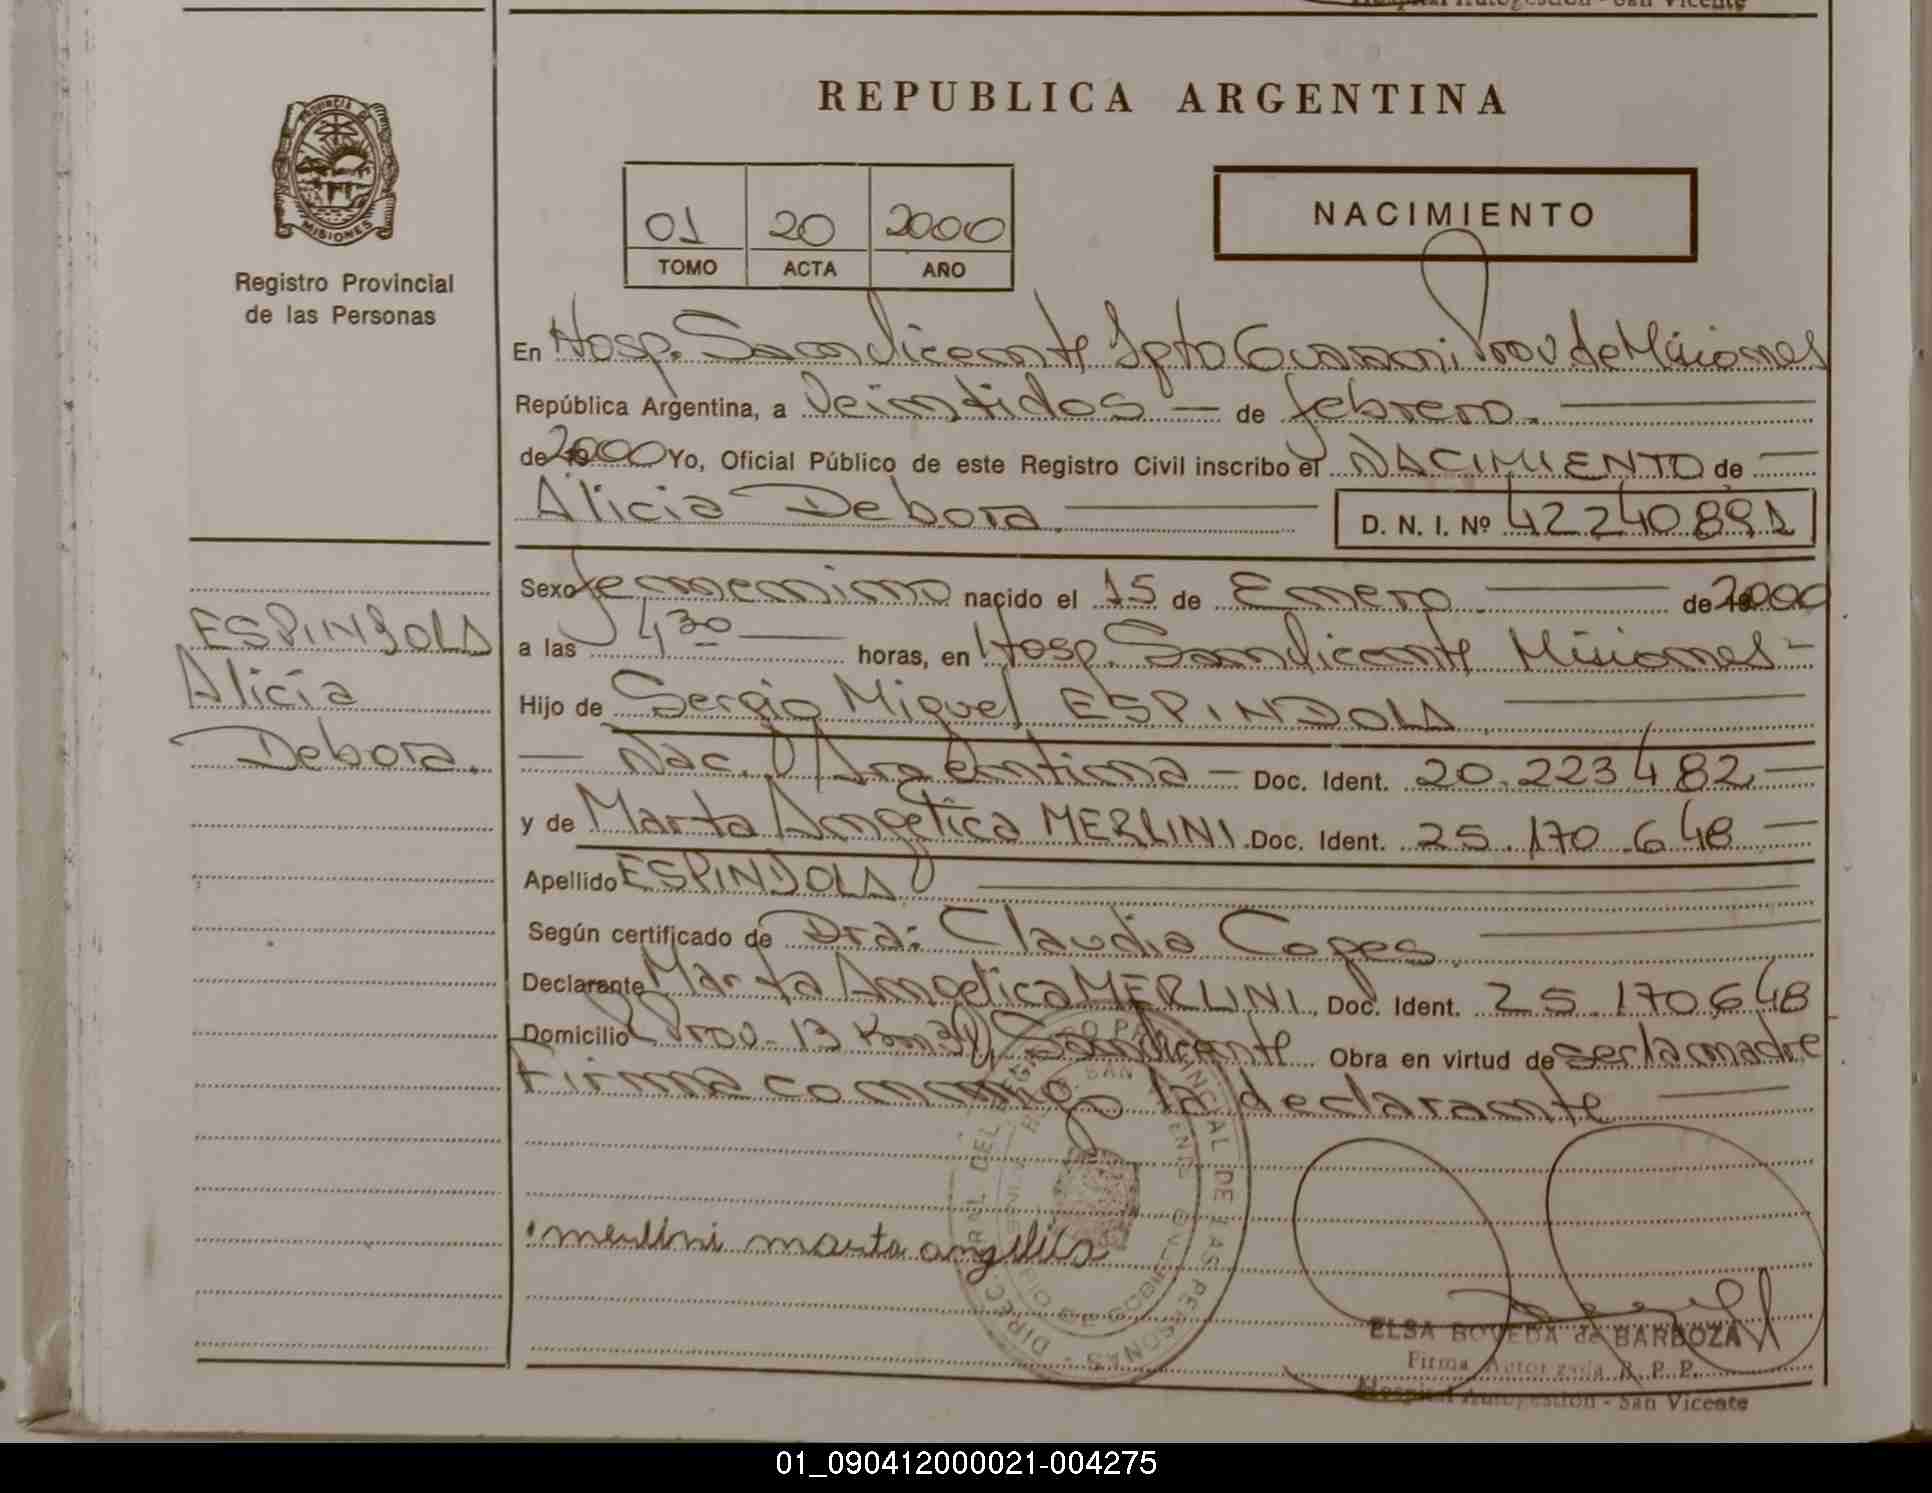 Hospital Autogestión - San Vicente
REPUBLICA ARGENTINA
PROVINCIA DE
MISIONES
Registro Provincial
de las Personas
01 20 2000
TOMO ACTA AÑO
NACIMIENTO
En Hosp. San Vicente Dpto Guarani Prov de Misiones
República Argentina, a Veintidos — de febrero.
de 2000 Yo, Oficial Público de este Registro Civil inscribo el NACIMIENTO de
Alicia Debora. D. N. I. Nº 42240891
Sexo femenino nacido el 15 de Enero de 2000
a las 4 30 horas, en Hosp. San Vicente Misiones -
Hijo de Sergio Miguel ESPINDOLA
— Nac. Argentina — Doc. Ident. 20.223482
y de Marta Angelica MERLINI. Doc. Ident. 25.170.648
Apellido ESPINDOLA
Según certificado de Dra: Claudia Copes.
Declarante Marta Angelica MERLINI, Doc. Ident. 25.170648
Domicilio R Prov. 13 Km San Vicente Obra en virtud de ser la madre
Firma conmigo la declarante
ESPINDOLA
Alicia
Debora.
merlini marta angelica
DIREC. GRAL DEL REGISTRO PROVINCIAL DE LAS PERSONAS
ELSA BOVEDA de BARBOZA
Firma Autorizada R. P. P.
Hospital Autogestión - San Vicente
01_090412000021-004275